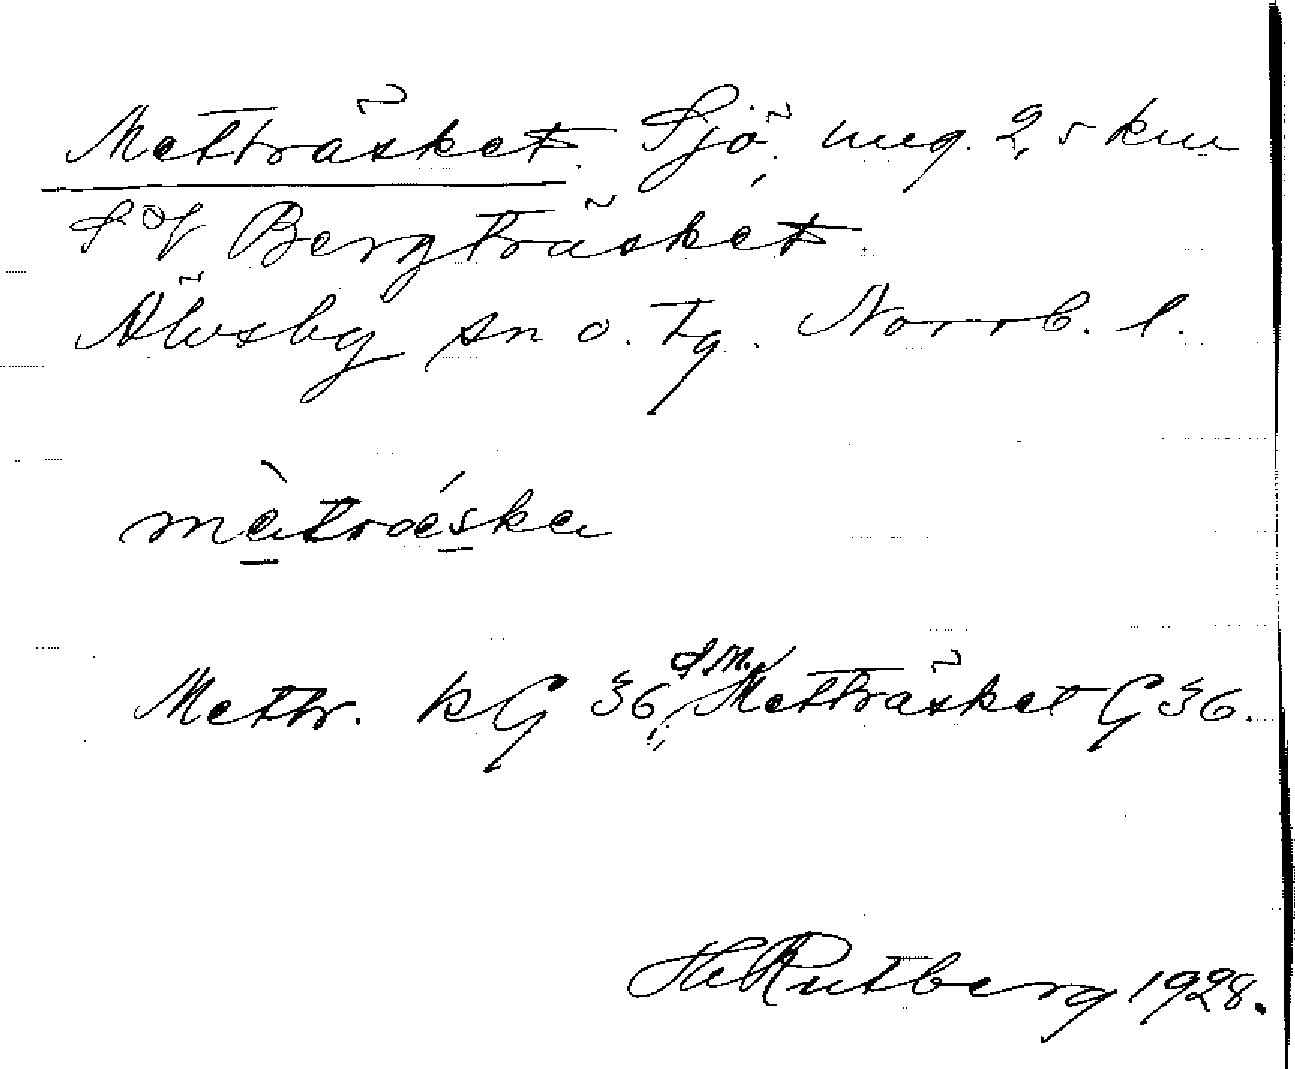 Metträsket. Sjö, ung. 2,5 km
S of Bergträsket
Älvsby sn o. tg. Norrb. l.
mètræ̀ska
Mettr. kG 36, d.m. Metträsket G 36.
H Rutberg 1928.